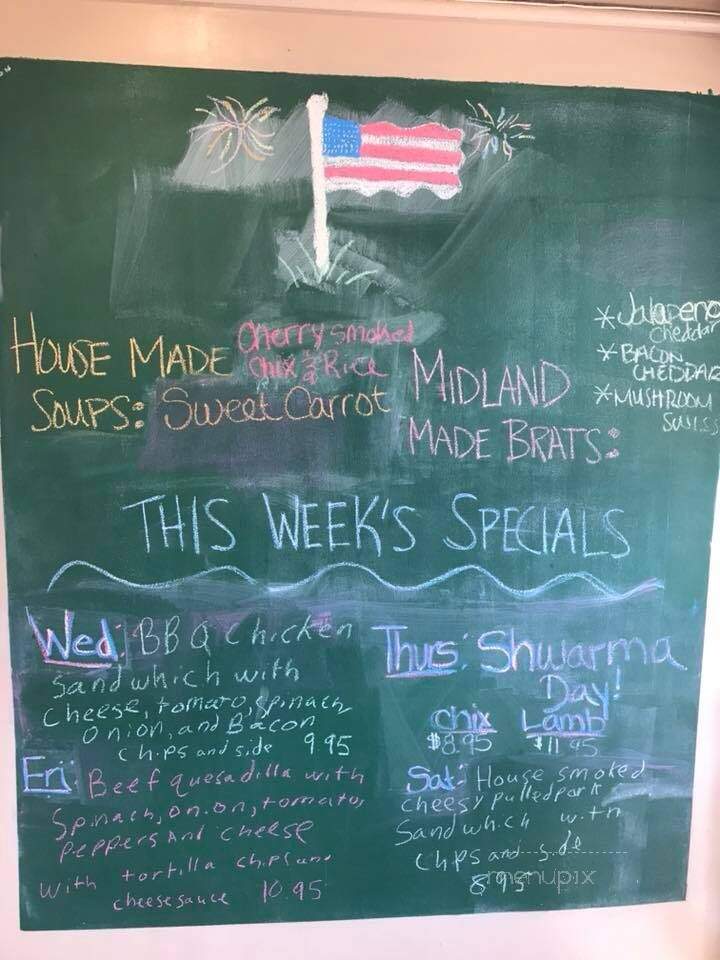 HOUSE MADE
SOUPS:
Cherry smoked
Chix & Rice
Sweet Carrot
MIDLAND
MADE BRATS:
*Jalapeno
Cheddar
*BACON
CHEDDAR
*MUSHROOM
SWISS
THIS WEEK'S SPECIALS
Wed: BBQ Chicken
Sandwhich with
Cheese, tomato, Spinach
Onion, and Bacon
Chips and side 9.95
Thurs: Shwarma
Day!
Chix Lamb
$8.95 $11.95
Fri: Beef quesadilla with
Spinach, onion, tomato,
Peppers And cheese
With tortilla chips and
cheese sauce 10.95
Sat: House smoked
cheesy pulled pork
Sandwhich with
Chps and side
8.95
menupix